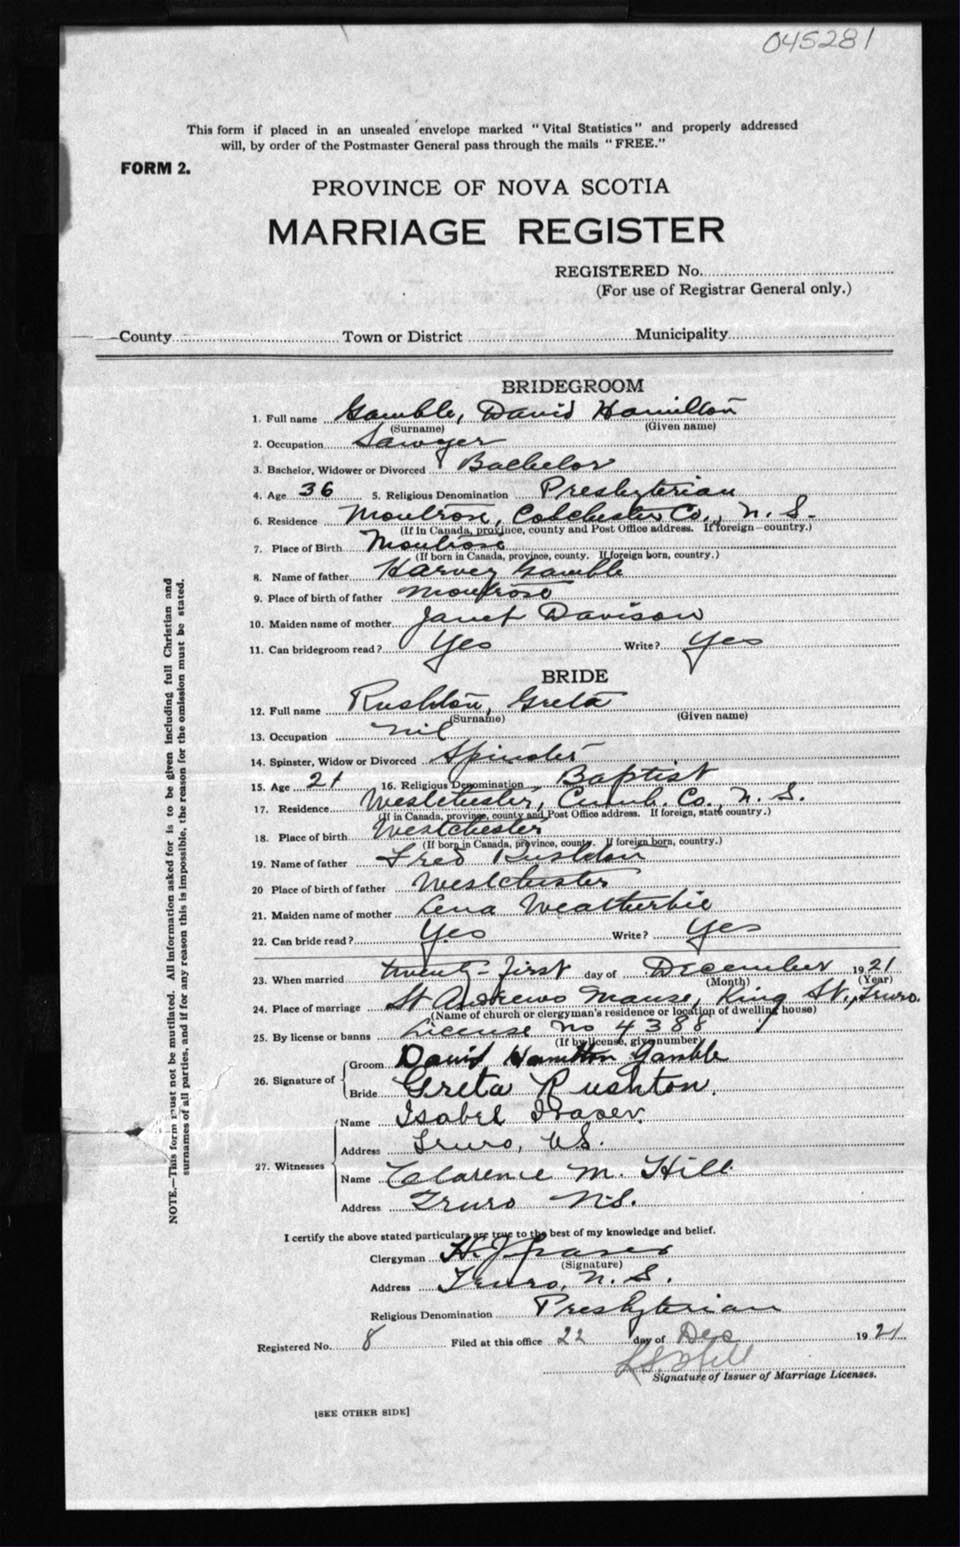 045281
This form if placed in an unsealed envelope marked "Vital Statistics" and properly addressed
will, by order of the Postmaster General pass through the mails "FREE."
FORM 2.
PROVINCE OF NOVA SCOTIA
MARRIAGE REGISTER
REGISTERED No.
(For use of Registrar General only.)
County Town or District Municipality
BRIDEGROOM
1. Full name Gamble, David Hamilton
(Surname) (Given name)
2. Occupation Sawyer
3. Bachelor, Widower or Divorced Bachelor
4. Age 36 5. Religious Denomination Presbyterian
6. Residence Montrose, Colchester Co., N. S.
(If in Canada, province, county and Post Office address. If foreign—country.)
7. Place of Birth Montrose
(If born in Canada, province, county. If foreign born, country.)
8. Name of father Harvey Gamble
9. Place of birth of father Montrose
10. Maiden name of mother Janet Davison
11. Can bridegroom read? Yes Write? Yes
BRIDE
12. Full name Rushton, Greta
(Surname) (Given name)
13. Occupation nil
14. Spinster, Widow or Divorced Spinster
15. Age 21 16. Religious Denomination Baptist
17. Residence Westchester, Cumb. Co., N. S.
(If in Canada, province, county and Post Office address. If foreign, state country.)
18. Place of birth Westchester
(If born in Canada, province, county. If foreign born, country.)
19. Name of father Fred Rushton
20 Place of birth of father Westchester
21. Maiden name of mother Lena Weatherbie
22. Can bride read? Yes Write? Yes
23. When married twenty-first day of December 1921
(Month) (Year)
24. Place of marriage St Andrews Manse, King St., Truro.
(Name of church or clergyman's residence or location of dwelling house)
25. By license or banns License No 4388
(If by license, give number)
26. Signature of Groom David Hamilton Gamble
Bride Greta Rushton.
27. Witnesses Name Isabel Fraser.
Address Truro, NS.
Name Clarence M. Hill
Address Truro N.S.
I certify the above stated particulars are true to the best of my knowledge and belief.
Clergyman H. J. Fraser
(Signature)
Address Truro, N. S.
Religious Denomination Presbyterian
Registered No. 8 Filed at this office 22 day of Dec 1921
Signature of Issuer of Marriage Licenses.
[SEE OTHER SIDE]
NOTE.—This form must not be mutilated. All information asked for is to be given including full Christian and
surnames of all parties, and if for any reason this is impossible, the reason for the omission must be stated.